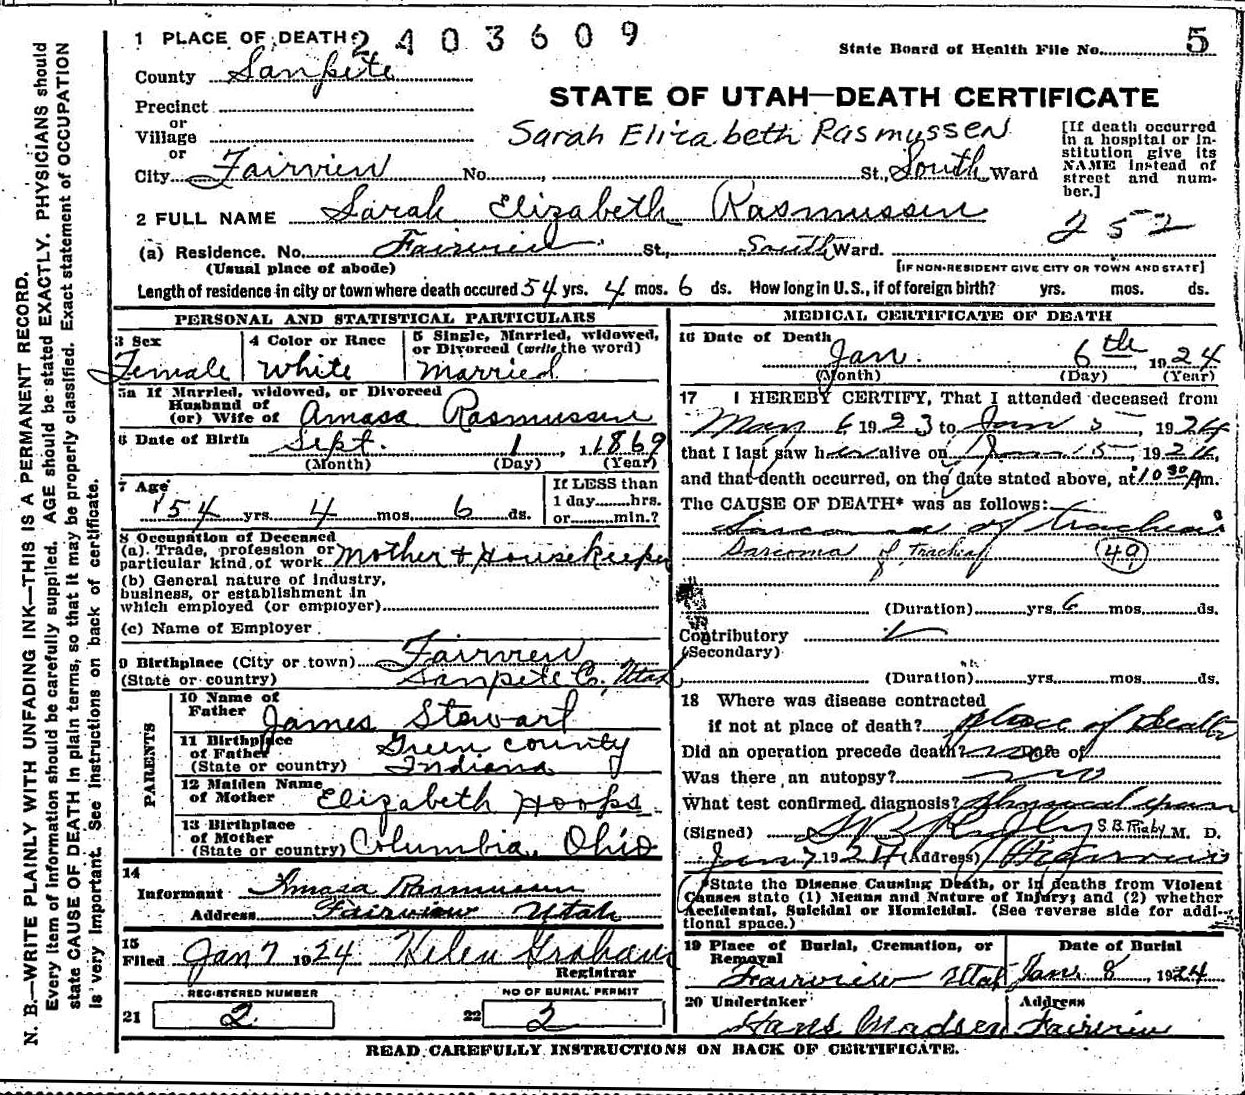 1 PLACE OF DEATH 2403609
State Board of Health File No. 5
County Sanpete
STATE OF UTAH—DEATH CERTIFICATE
Precinct
or
Village
Sarah Elizabeth Rasmussen
[If death occurred in a hospital or institution give its NAME instead of street and number.]
or
City Fairview No. , St., South Ward
2 FULL NAME Sarah Elizabeth Rasmussen
252
(a) Residence. No. Fairview St., South Ward.
(Usual place of abode)
[IF NON-RESIDENT GIVE CITY OR TOWN AND STATE]
Length of residence in city or town where death occured 54 yrs. 4 mos. 6 ds. How long in U.S., if of foreign birth? yrs. mos. ds.
PERSONAL AND STATISTICAL PARTICULARS
3 Sex
Female
4 Color or Race
White
5 Single, Married, widowed, or Divorced (write the word)
Married
5a If Married, widowed, or Divorced
Husband of
(or) Wife of Amasa Rasmussen
6 Date of Birth Sept. 1, 1869
(Month) (Day) (Year)
7 Age
54 yrs. 4 mos. 6 ds.
If LESS than
1 day hrs.
or min.?
8 Occupation of Deceased
(a). Trade, profession or
particular kind of work Mother & Housekeeper
(b) General nature of industry,
business, or establishment in
which employed (or employer)
(c) Name of Employer
9 Birthplace (City or town) Fairview
(State or country) Sanpete Co, Utah
PARENTS
10 Name of Father James Stewart
11 Birthplace of Father (State or country) Green county Indiana
12 Maiden Name of Mother Elizabeth Hoops
13 Birthplace of Mother (State or country) Columbia, Ohio
14
Informant Amasa Rasmussen
Address Fairview Utah
15
Filed Jan 7 1924 Helen Graham
Registrar
REGISTERED NUMBER
21 2
NO OF BURIAL PERMIT
22 2
MEDICAL CERTIFICATE OF DEATH
16 Date of Death
Jan. 6th 1924
(Month) (Day) (Year)
17 I HEREBY CERTIFY, That I attended deceased from
May 6 1923 to Jan 5, 1924
that I last saw her alive on Jan 5, 1924,
and that death occurred, on the date stated above, at 10 30 A m.
The CAUSE OF DEATH* was as follows:
Sarcoma of trachea
Sarcoma of trachea 49
(Duration) yrs. 6 mos. ds.
Contributory
(Secondary)
(Duration) yrs. mos. ds.
18 Where was disease contracted
if not at place of death? place of death
Did an operation precede death? no Date of
Was there an autopsy? no
What test confirmed diagnosis? Physical exam
(Signed) S B Rigby S.B. Rigby M. D.
Jan 7 1924 (Address) Fairview
*State the Disease Causing Death, or in deaths from Violent
Causes state (1) Means and Nature of Injury; and (2) whether
Accidental, Suicidal or Homicidal. (See reverse side for addi-
tional space.)
19 Place of Burial, Cremation, or Removal
Fairview Utah
Date of Burial
Jan. 8, 1924
20 Undertaker
Hans Madsen
Address
Fairview
READ CAREFULLY INSTRUCTIONS ON BACK OF CERTIFICATE.
N. B.—WRITE PLAINLY WITH UNFADING INK—THIS IS A PERMANENT RECORD.
Every item of information should be carefully supplied. AGE should be stated EXACTLY. PHYSICIANS should
state CAUSE OF DEATH in plain terms, so that it may be properly classified. Exact statement of OCCUPATION
is very important. See instructions on back of certificate.